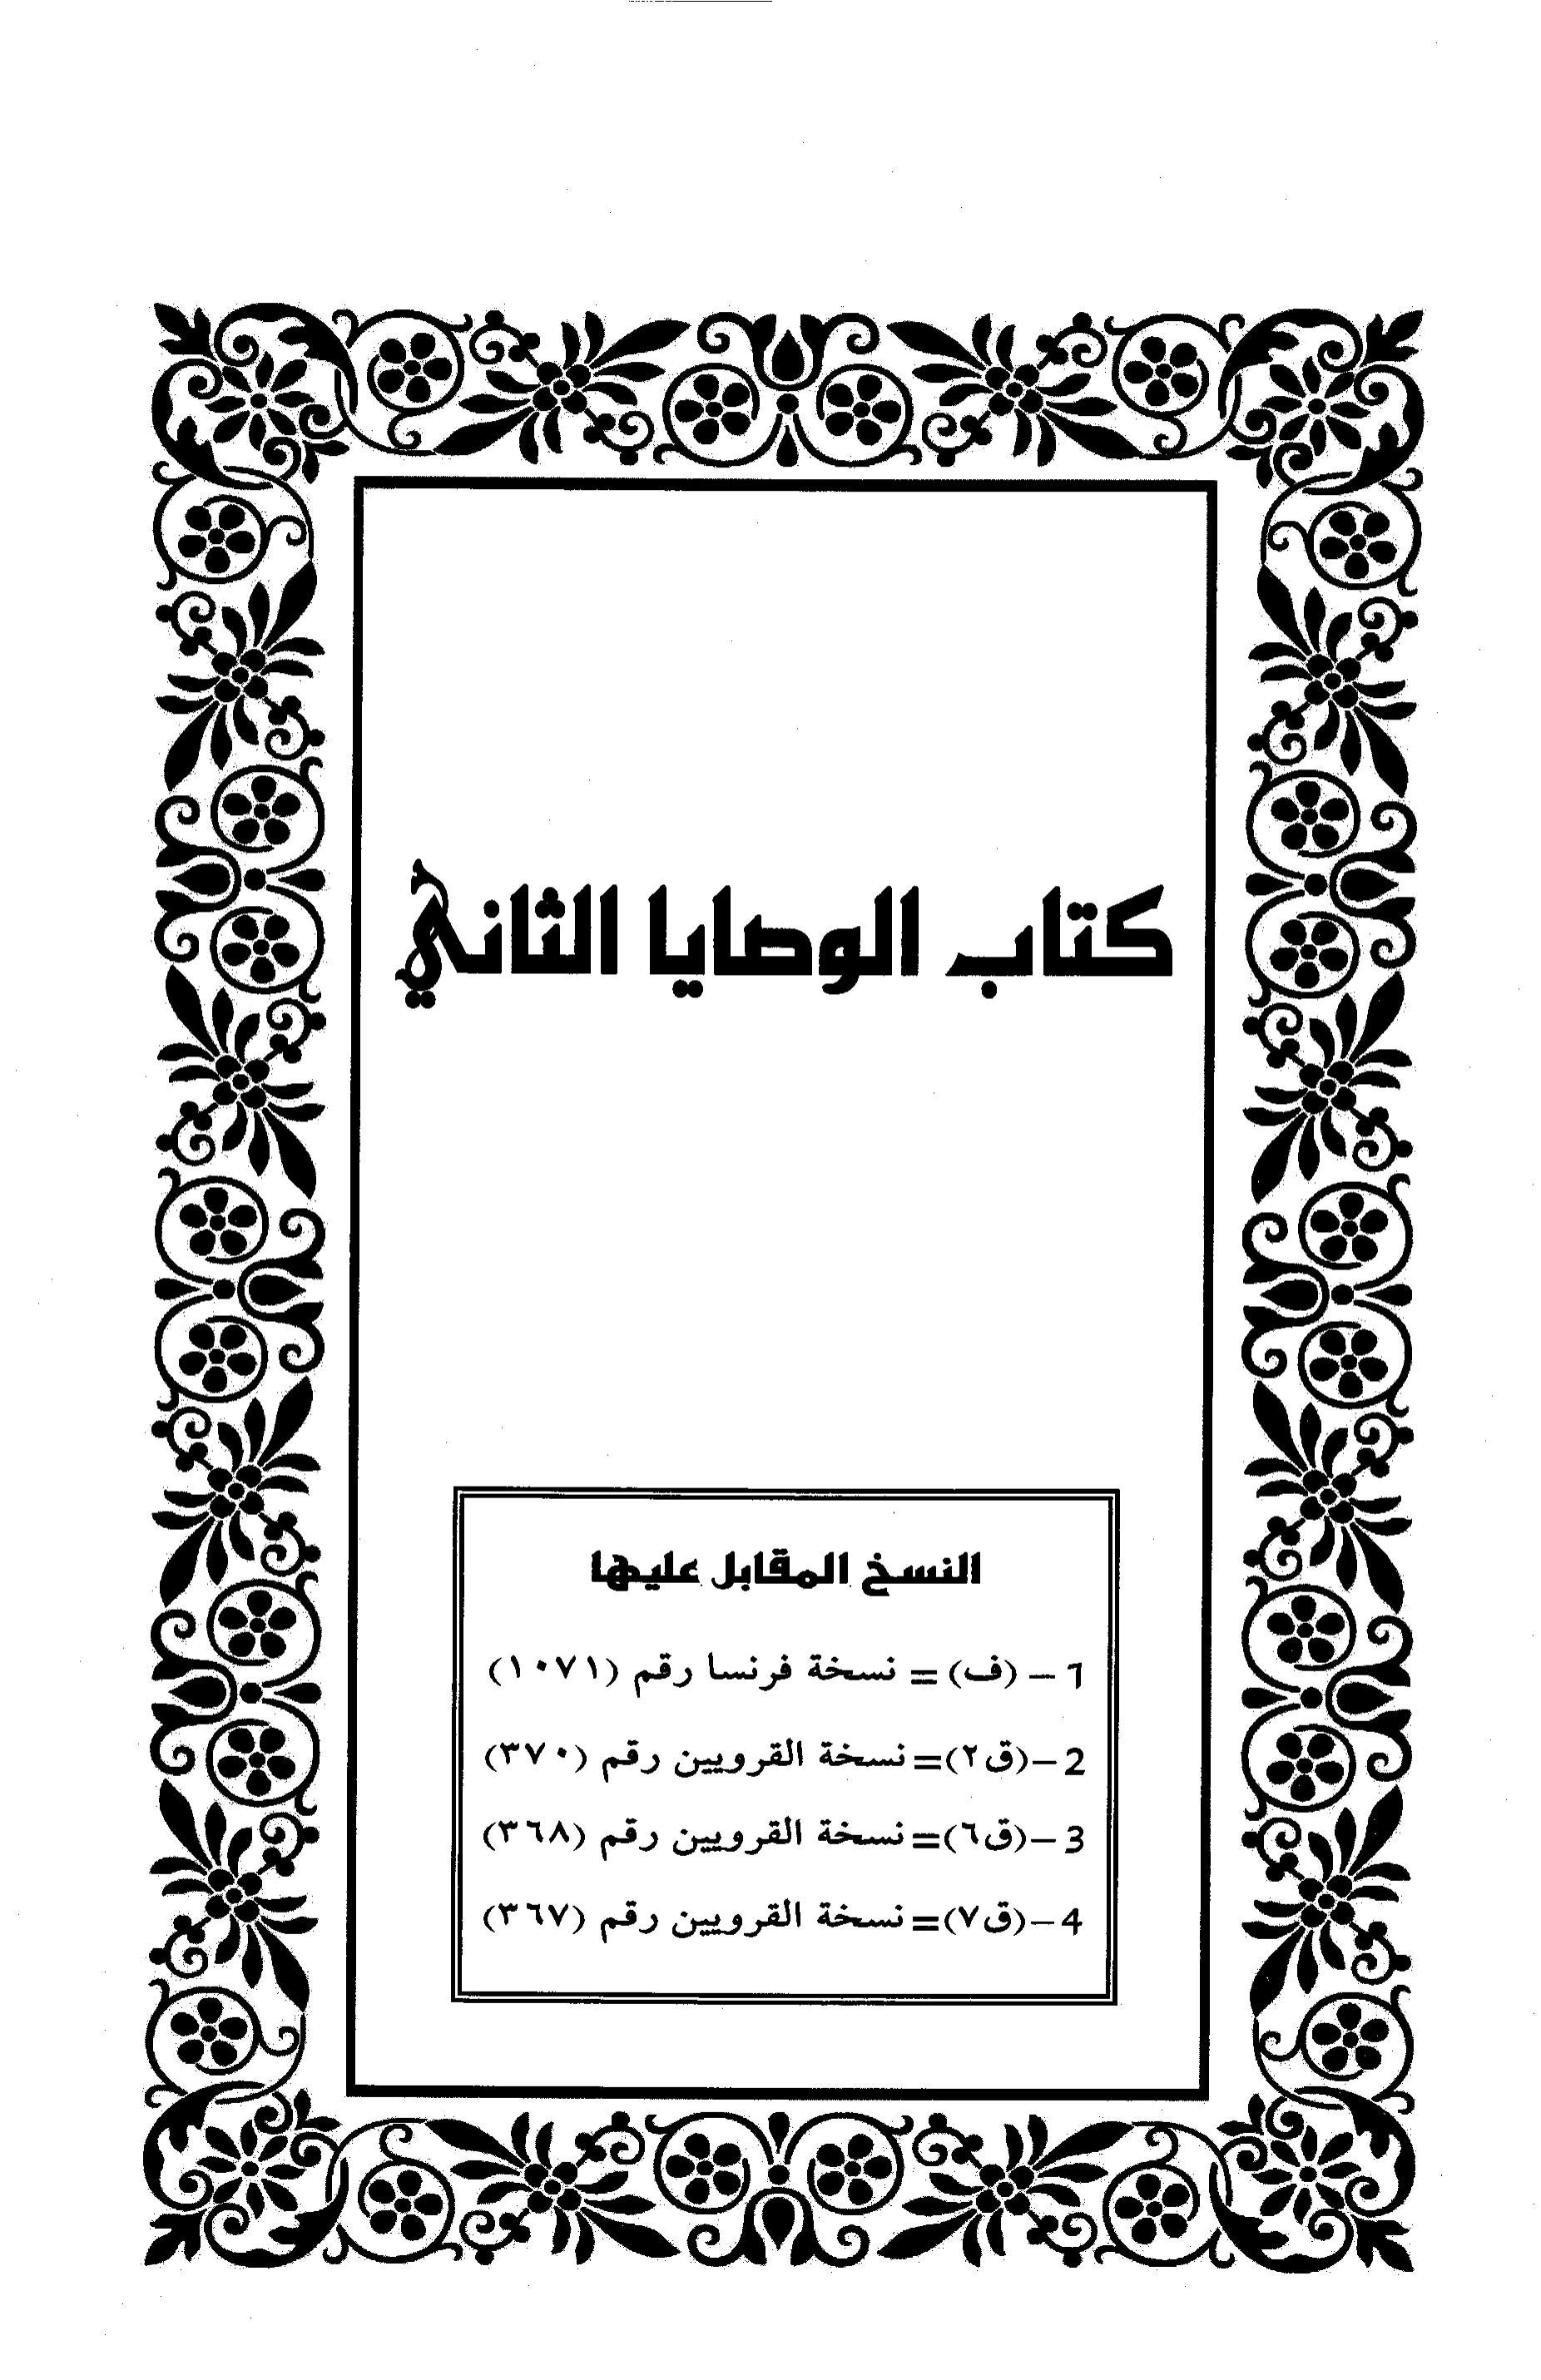 كتاب الوصايا الثاني
النسخ المقابل عليها
1 - (ف) = نسخة فرنسا رقم (١٠٧١)
2 - (ق٢) = نسخة القرويين رقم (٣٧٠)
3 - (ق٦) = نسخة القرويين رقم (٣٦٨)
4 - (ق٧) = نسخة القرويين رقم (٣٦٧)